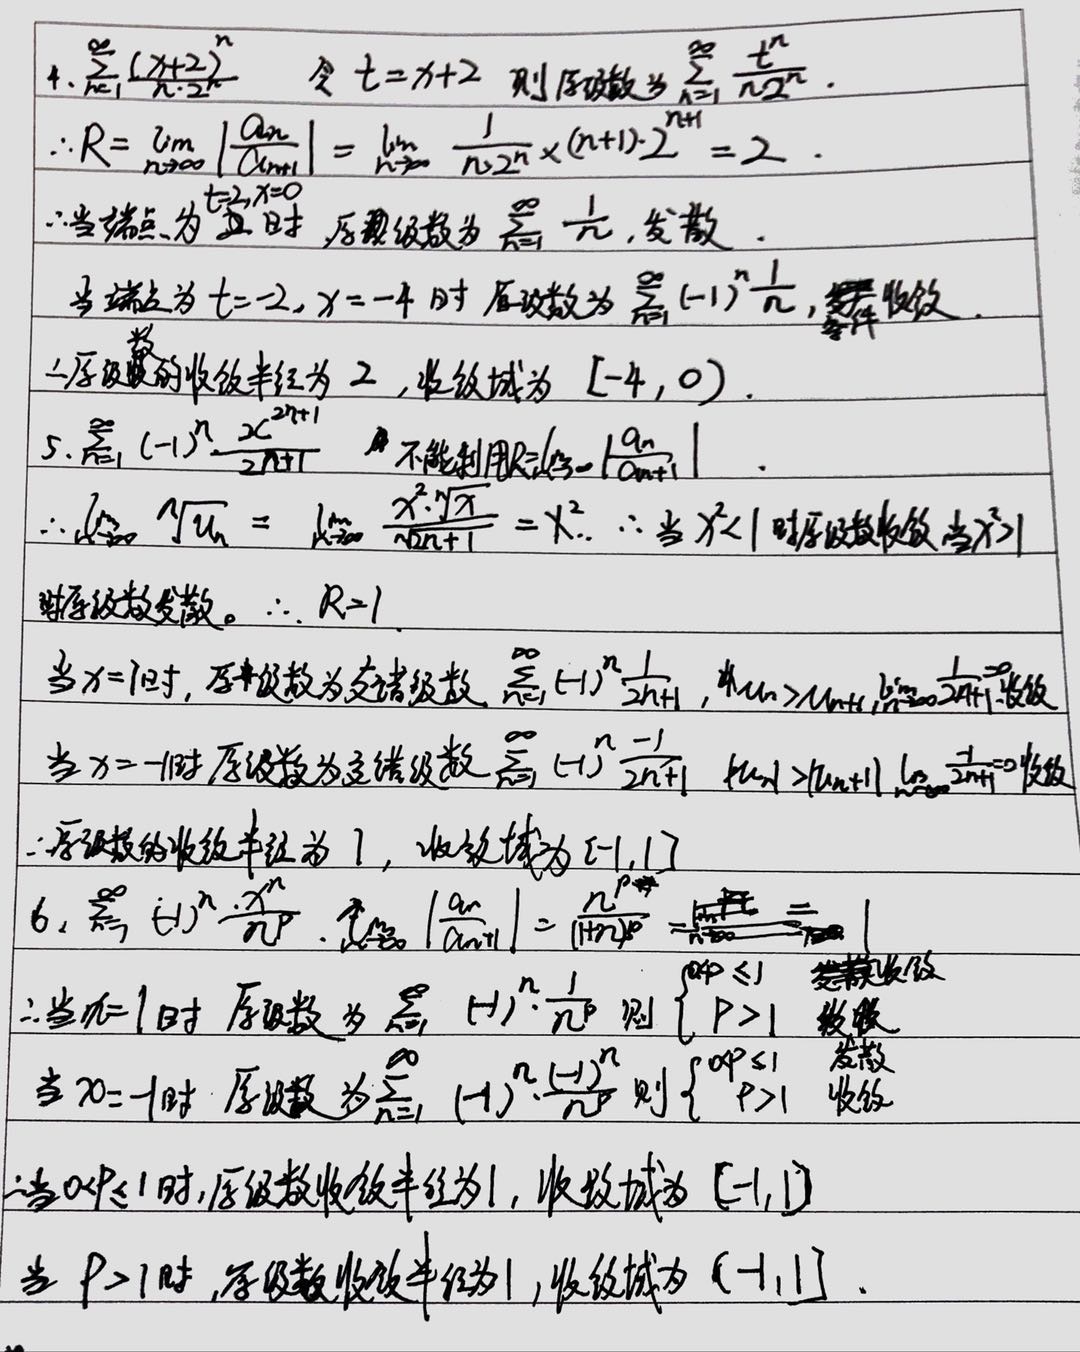 4. $\sum_{n=1}^{\infty} \frac{(x+2)^n}{n \cdot 2^n}$ 令 $t = x+2$ 则原级数为 $\sum_{n=1}^{\infty} \frac{t^n}{n 2^n}$.
∴ $R = \lim_{n \to \infty} \left| \frac{a_n}{a_{n+1}} \right| = \lim_{n \to \infty} \frac{1}{n \cdot 2^n} \times (n+1) \cdot 2^{n+1} = 2$.
∴当端点为 t=2, x=0 时 原级数为 $\sum_{n=1}^{\infty} \frac{1}{n}$, 发散.
当端点为 $t=-2, x=-4$ 时 原级数为 $\sum_{n=1}^{\infty} (-1)^n \frac{1}{n}$, 条件收敛.
∴原级数的收敛半径为 2, 收敛域为 [-4, 0).
5. $\sum_{n=1}^{\infty} (-1)^n \cdot \frac{x^{2n+1}}{2n+1}$ 不能利用 $R = \lim_{n \to \infty} \left| \frac{a_n}{a_{n+1}} \right|$.
∴ $\lim_{n \to \infty} \sqrt[n]{u_n} = \lim_{n \to \infty} \frac{x^2 \cdot \sqrt[n]{x}}{\sqrt[n]{2n+1}} = x^2$. ∴ 当 $x^2 < 1$ 时原级数收敛 当 $x^2 > 1$
时原级数发散。∴ R=1
当 x=1时, 原级数为交错级数 $\sum_{n=1}^{\infty} (-1)^n \frac{1}{2n+1}$, $u_n > u_{n+1}$, $\lim_{n \to \infty} \frac{1}{2n+1} = 0$ 收敛
当 x=-1时 原级数为交错级数 $\sum_{n=1}^{\infty} (-1)^n \frac{-1}{2n+1}$ $|u_n| > |u_{n+1}|$ $\lim_{n \to \infty} \frac{-1}{2n+1} = 0$ 收敛
∴原级数的收敛半径为 1, 收敛域为 [-1,1]
6. $\sum_{n=1}^{\infty} (-1)^n \cdot \frac{x^n}{n^p}$. $\lim_{n \to \infty} \left| \frac{a_n}{a_{n+1}} \right| = \frac{n^p}{(1+n)^p} = 1$
∴当 x=1时 原级数为 $\sum_{n=1}^{\infty} (-1)^n \cdot \frac{1}{n^p}$ 则 $\begin{cases} 0<p \le 1 & 收敛 \\ p>1 & 收敛 \end{cases}$
当 x=-1时 原级数为 $\sum_{n=1}^{\infty} (-1)^n \cdot \frac{(-1)^n}{n^p}$ 则 $\begin{cases} 0<p \le 1 & 发散 \\ p>1 & 收敛 \end{cases}$
∴当 0<p≤1时, 原级数收敛半径为1, 收敛域为 [-1,1)
当 p>1时, 原级数收敛半径为1, 收敛域为 (-1,1].